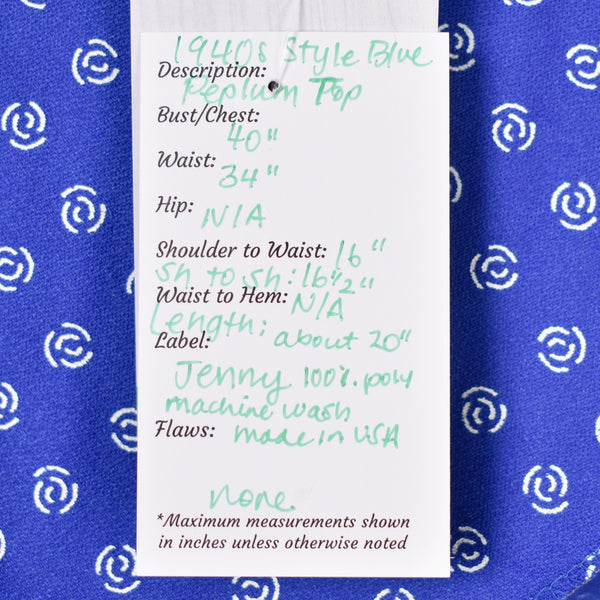 1940s Style Blue
Description:
Peplum Top
Bust/Chest:
40"
Waist: 34"
Hip: N/A
Shoulder to Waist: 16"
Sh to Sh: 16 1/2"
Waist to Hem: N/A
Length: about 20"
Label:
Jenny 100% poly
machine wash
Flaws: made in USA
none.
*Maximum measurements shown
in inches unless otherwise noted